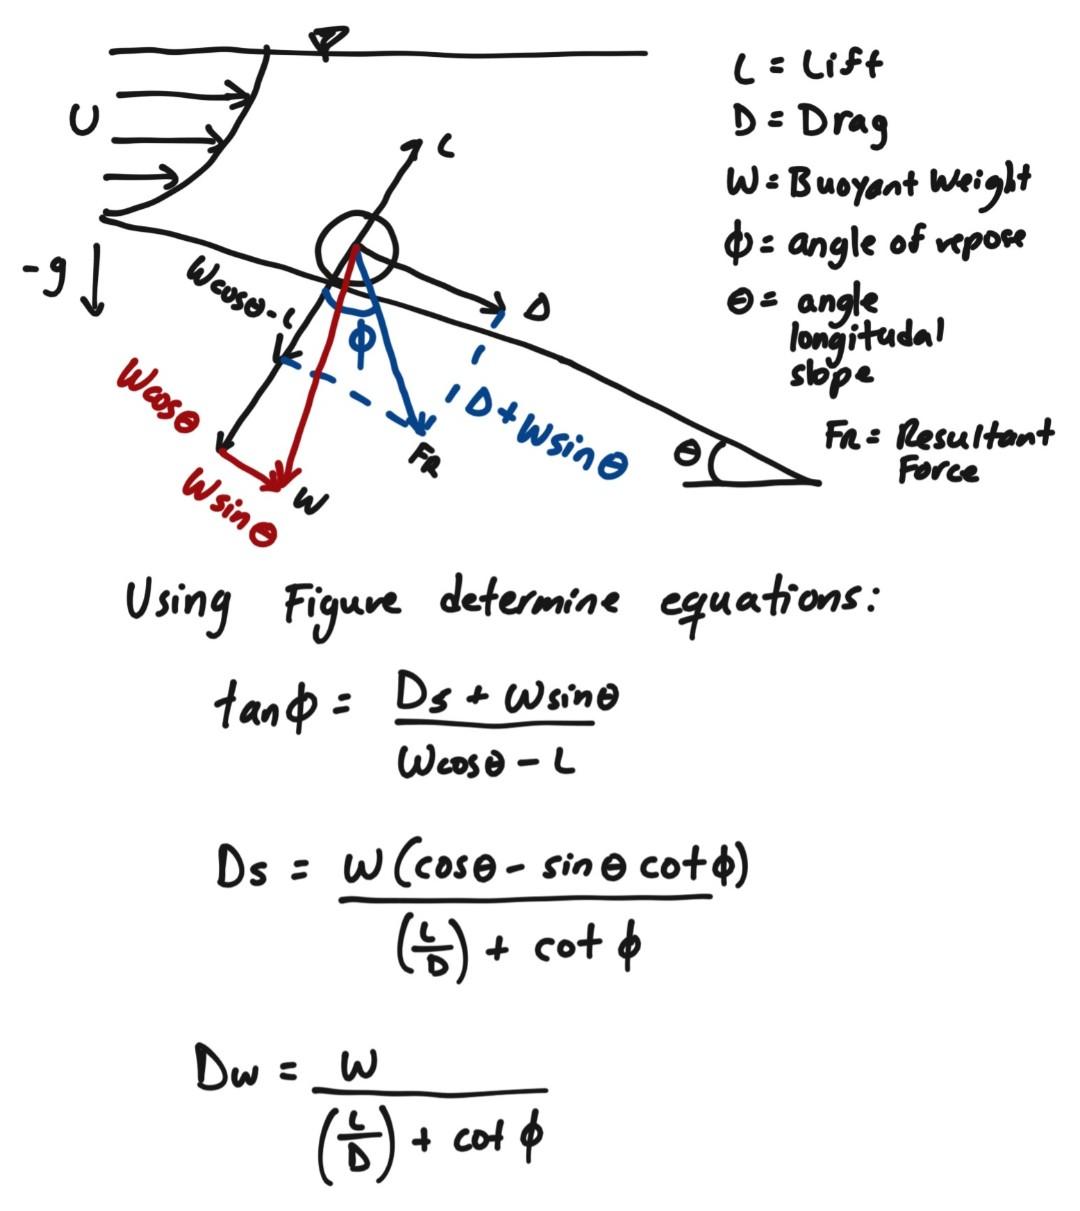 U
-g
L
Wcosθ-L
D
ϕ
Wcosθ
D+Wsinθ
Wsinθ
W
FR
θ
L = Lift
D = Drag
W = Buoyant Weight
ϕ = angle of repose
θ = angle
longitudal
slope
FR = Resultant
Force
Using Figure determine equations:
tanϕ = Ds + Wsinθ
Wcosθ - L
Ds = W(cosθ - sinθ cotϕ)
(L/D) + cot ϕ
Dw = W
(L/D) + cot ϕ